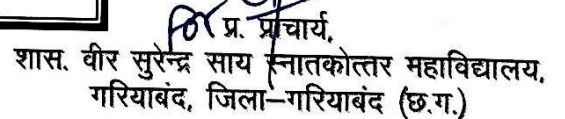 For प्र. प्राचार्य,
शास. वीर सुरेन्द्र साय स्नातकोत्तर महाविद्यालय,
गरियाबंद, जिला–गरियाबंद (छ.ग.)